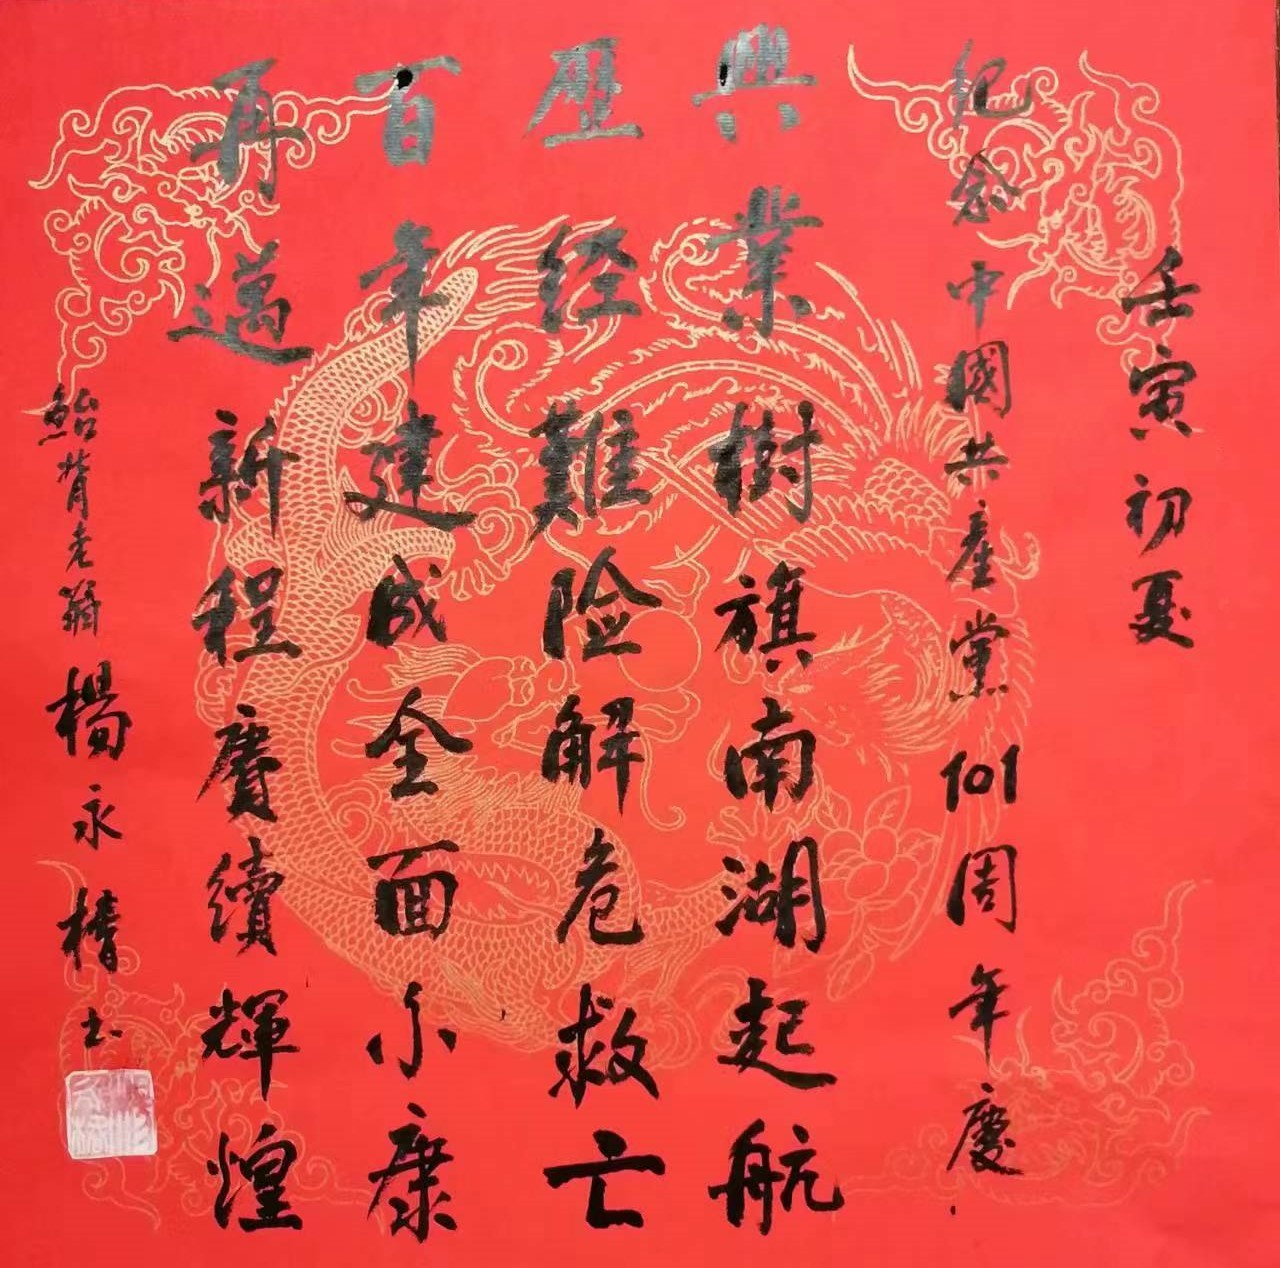 壬寅初夏
纪念中國共產黨101周年慶
興業樹旗南湖起航
歷经難险解危救亡
百年建成全面小康
再邁新程賡續輝煌
鲐背老翁楊永椿书